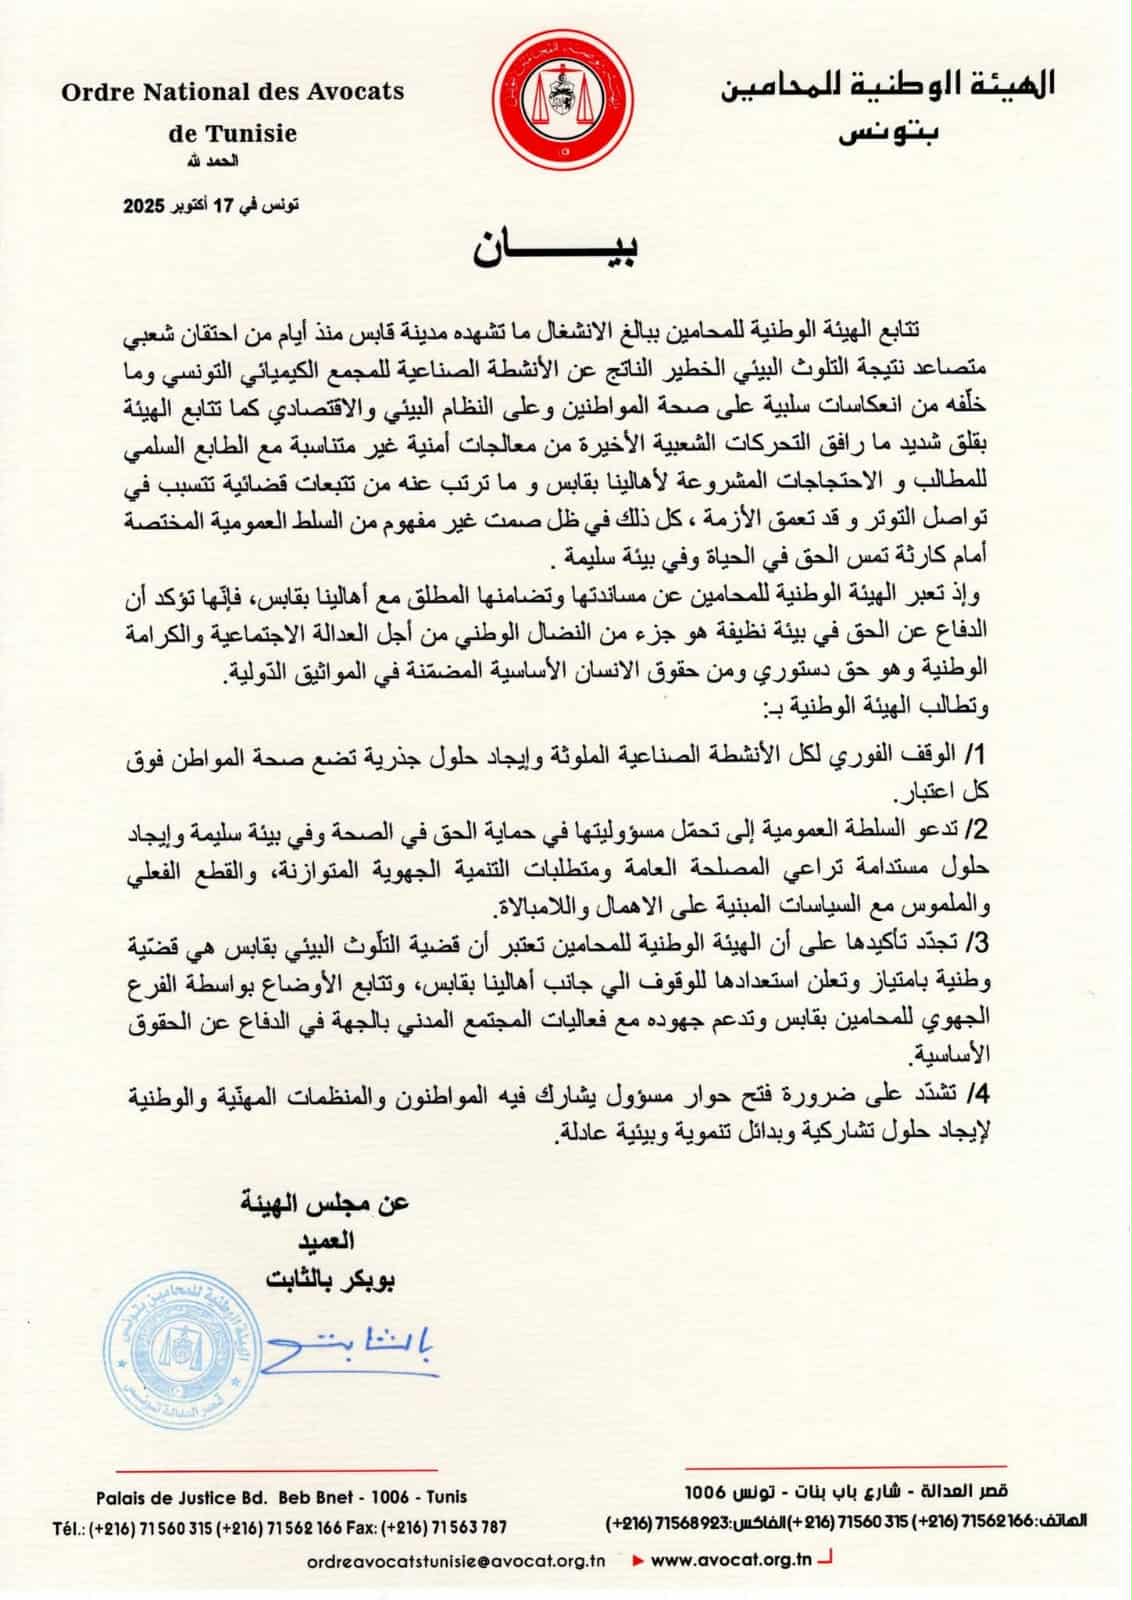 Ordre National des Avocats
de Tunisie
الهيئة الوطنية للمحامين
بتونس
الحمد لله
تونس في 17 أكتوبر 2025
بيـــــــان
تتابع الهيئة الوطنية للمحامين ببالغ الانشغال ما تشهده مدينة قابس منذ أيام من احتقان شعبي
متصاعد نتيجة التلوث البيئي الخطير الناتج عن الأنشطة الصناعية للمجمع الكيميائي التونسي وما
خلّفه من انعكاسات سلبية على صحة المواطنين وعلى النظام البيئي والاقتصادي كما تتابع الهيئة
بقلق شديد ما رافق التحركات الشعبية الأخيرة من معالجات أمنية غير متناسبة مع الطابع السلمي
للمطالب و الاحتجاجات المشروعة لأهالينا بقابس و ما ترتب عنه من تتبعات قضائية تتسبب في
تواصل التوتر و قد تعمق الأزمة ، كل ذلك في ظل صمت غير مفهوم من السلط العمومية المختصة
أمام كارثة تمس الحق في الحياة وفي بيئة سليمة .
وإذ تعبر الهيئة الوطنية للمحامين عن مساندتها وتضامنها المطلق مع أهالينا بقابس، فإنّها تؤكد أن
الدفاع عن الحق في بيئة نظيفة هو جزء من النضال الوطني من أجل العدالة الاجتماعية والكرامة
الوطنية وهو حق دستوري ومن حقوق الانسان الأساسية المضمّنة في المواثيق الدّولية.
وتطالب الهيئة الوطنية بـ:
1/ الوقف الفوري لكل الأنشطة الصناعية الملوثة وإيجاد حلول جذرية تضع صحة المواطن فوق
كل اعتبار.
2/ تدعو السلطة العمومية إلى تحمّل مسؤوليتها في حماية الحق في الصحة وفي بيئة سليمة وإيجاد
حلول مستدامة تراعي المصلحة العامة ومتطلبات التنمية الجهوية المتوازنة، والقطع الفعلي
والملموس مع السياسات المبنية على الاهمال واللامبالاة.
3/ تجدّد تأكيدها على أن الهيئة الوطنية للمحامين تعتبر أن قضية التلّوث البيئي بقابس هي قضّية
وطنية بامتياز وتعلن استعدادها للوقوف الي جانب أهالينا بقابس، وتتابع الأوضاع بواسطة الفرع
الجهوي للمحامين بقابس وتدعم جهوده مع فعاليات المجتمع المدني بالجهة في الدفاع عن الحقوق
الأساسية.
4/ تشدّد على ضرورة فتح حوار مسؤول يشارك فيه المواطنون والمنظمات المهنّية والوطنية
لإيجاد حلول تشاركية وبدائل تنموية وبيئية عادلة.
عن مجلس الهيئة
العميد
بوبكر بالثابت
بالثابت
الهيئة الوطنية للمحامين بتونس
قصر العدالة تونس
Palais de Justice Bd. Beb Bnet - 1006 - Tunis
Tél.: (+216) 71 560 315 (+216) 71 562 166 Fax: (+216) 71 563 787
قصر العدالة - شارع باب بنات - تونس 1006
الهاتف: 71562166 (+216) 71560 315 (+216) الفاكس: 71568923 (+216)
ordreavocatstunisie@avocat.org.tn ► www.avocat.org.tn